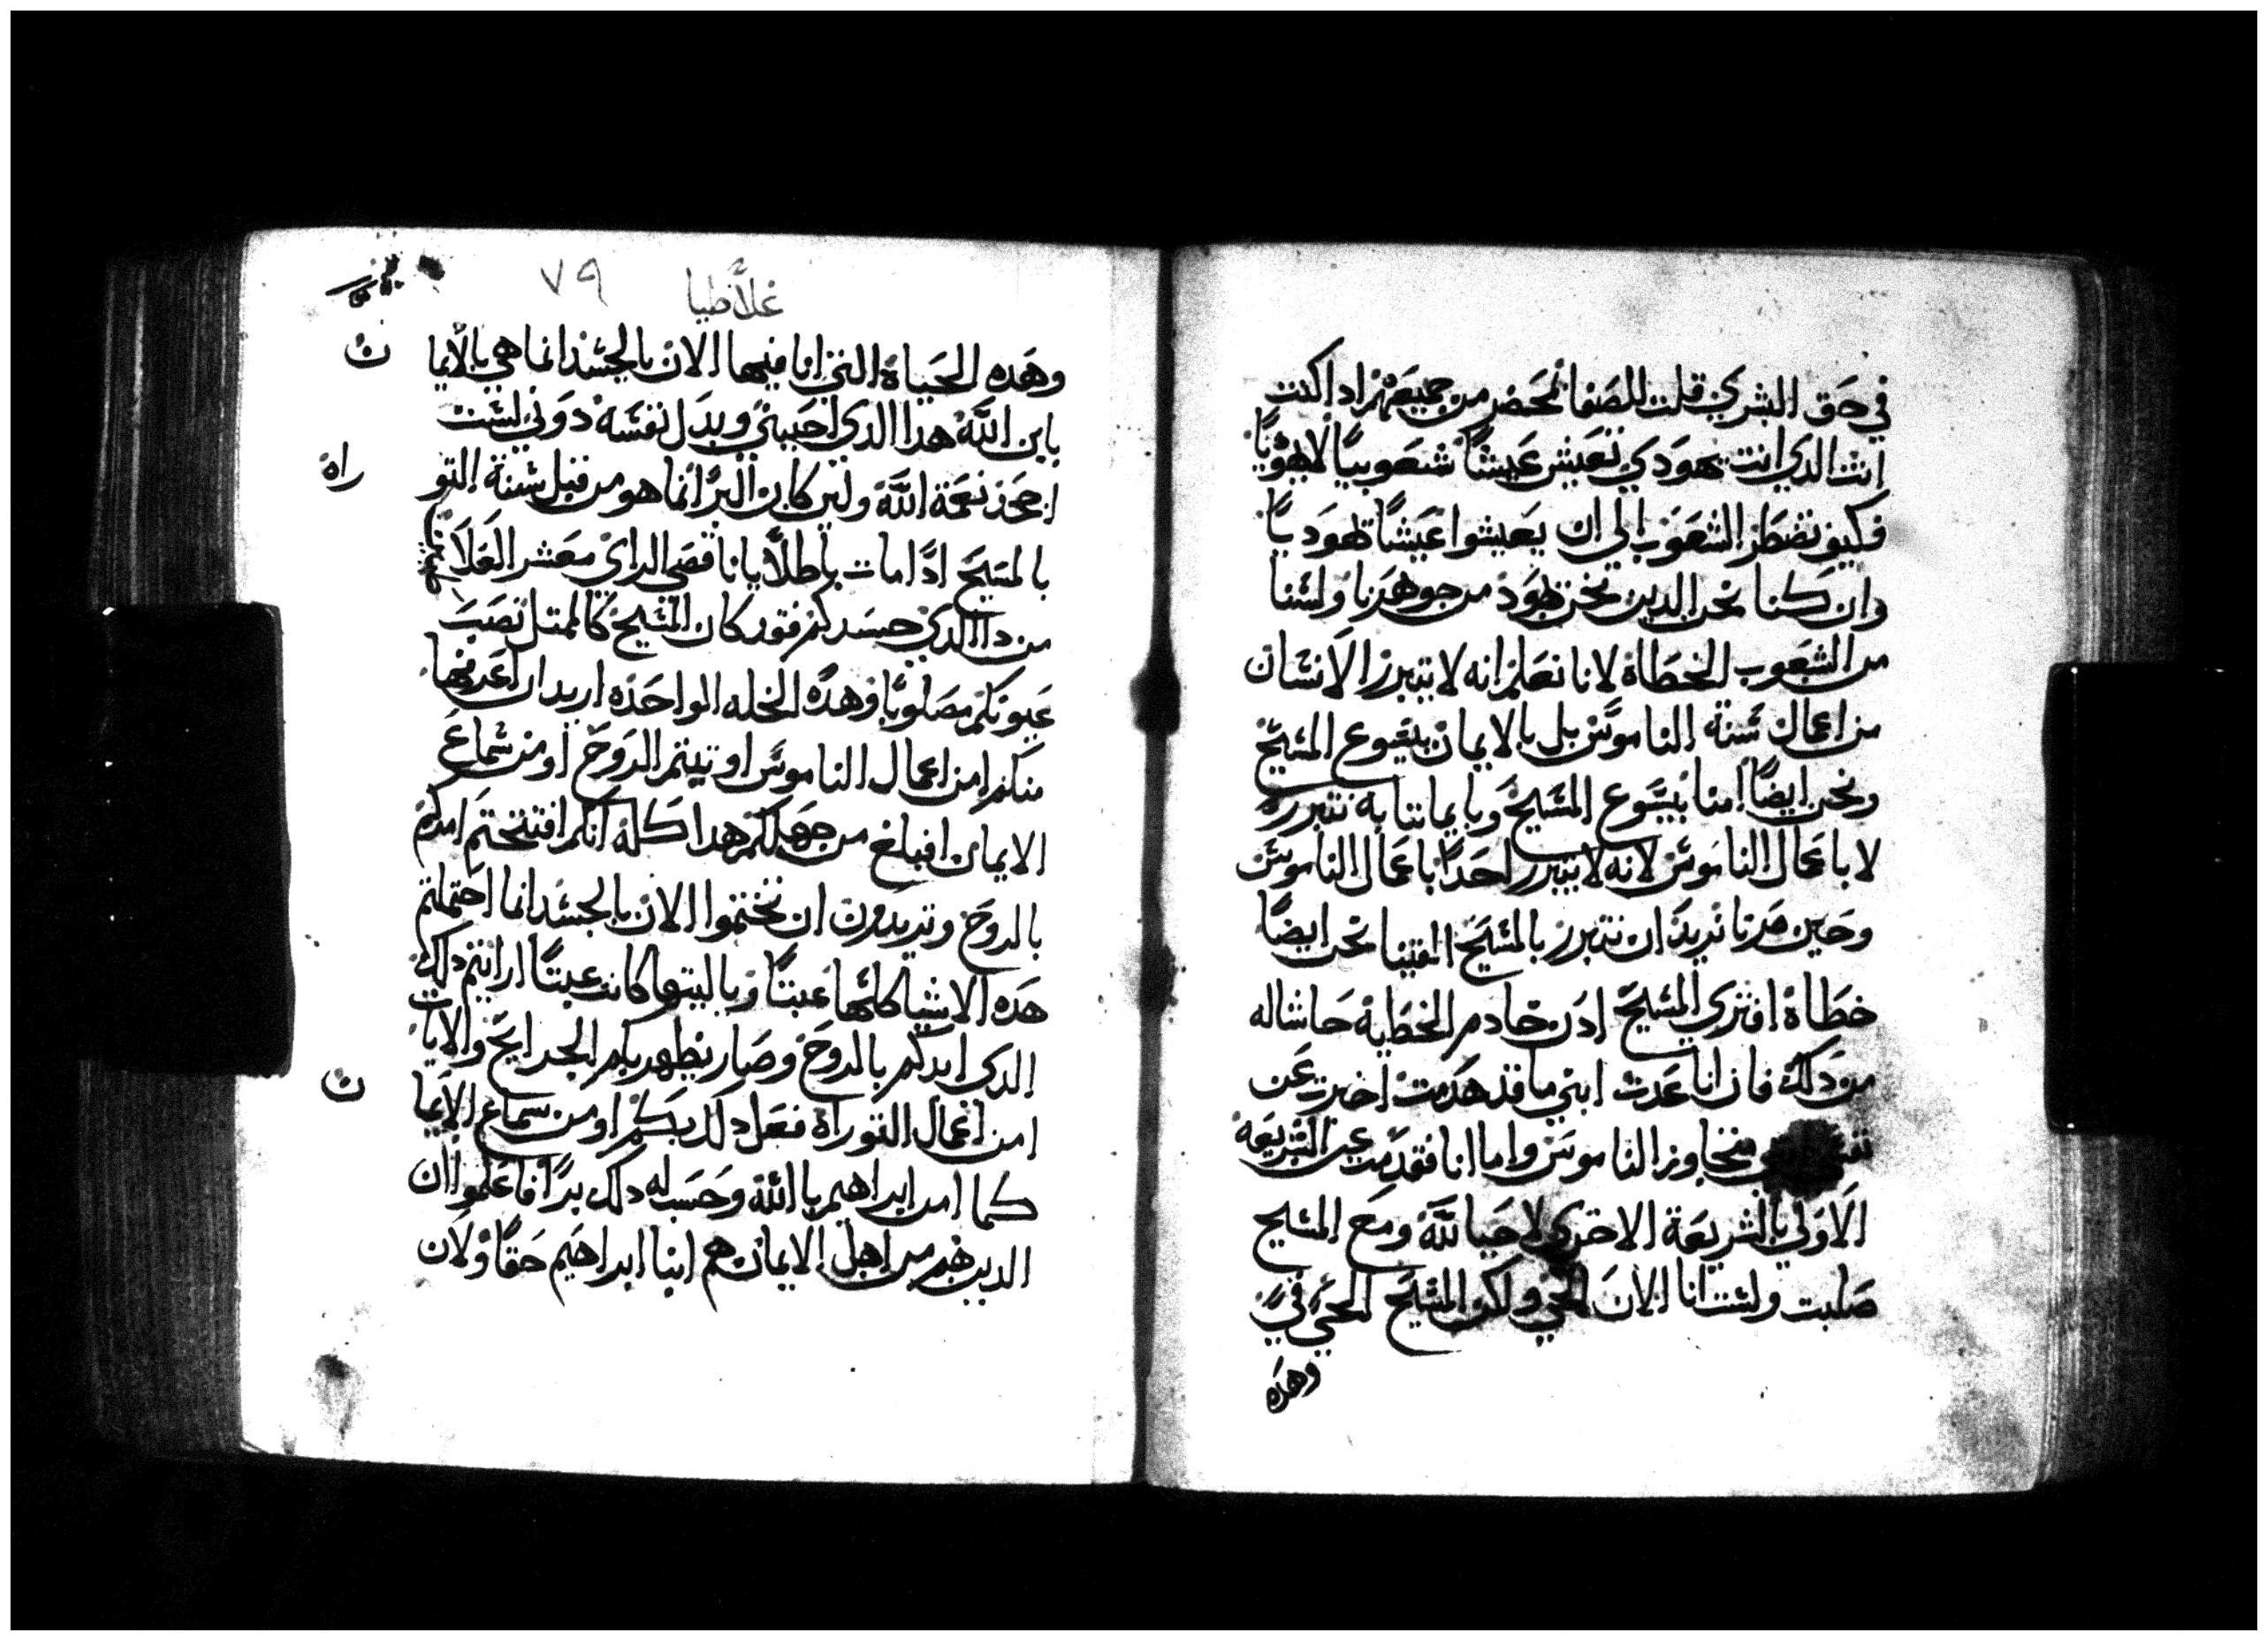 في حق البشري قلت للصفا بمحضر من جميعهم اذا كنت
انت الدي انت يهودي تعيش عيشًا شعوبيًا لا يهوديًا
فكيف تضطر الشعوب الي ان يعيشوا عيشًا يهوديًا
وان كنا نحن الدين نحن يهود من جوهرنا ولسنا
من الشعوب الخطاة لانا نعلم انه لا يتبرر الانسان
من اعمال سنة الناموس بل بالايمان بيسوع المسيح
ونحن ايضًا امنا بيسوع المسيح وبايماننا به نتبرر
لا باعمال الناموس لانه لا يتبرر احدًا باعمال الناموس
وحين مرنا نريد ان نتبرر بالمسيح الفينا نحن ايضًا
خطاة افتري المسيح ادن خادم الخطية حاشاله
من دلك فان انا عدت ابني ما قد هدمت اخبرت عن
متجاوز الناموس واما انا فقد مت عن الشريعة
الاولي بالشريعة الاخري لاحيا لله ومع المسيح
صلبت ولست انا الان الحي ولكن المسيح الحي في
وهده
غلاطيا
٧٩
وهده الحياة التي انا فيها الان بالجسد انما هي بالايما
ن
بابن الله هدا الدي احبني وبدل نفسه دوني لست
اجحد نعمة الله ولين كان البر انما هو من قبل سنة التو
راة
بالمسيح ادًا مات باطلاً يا ناقصي الراي معشر الغلا
من دا الدي حسدكم فقد كان المسيح كالممتل نصب
عيونكم مصلوبًا وهده الخله الواحده اريد ان اعرفها
منكم امن اعمال الناموس اوتيتم الروح او من سماع
الايمان افبلغ من جهلكم هدا كله انكم افتتحتم امركم
بالروح وتريدون ان تختموا الان بالجسد انما احتملتم
هده الاشيا كلها عبتًا وياليتها كانت عبتًا ارايتم دلك
الدي ايدكم بالروح وصار يظهر بكم الجرايح والايات
امن اعمال التوراة فعل دلك بكم او من سماع الايما
ن
كما امن ابراهيم بالله وحسب له دلك برًا فاعلموا ان
الدين هم من اهل الايمان هم ابنا ابراهيم حقًا ولان